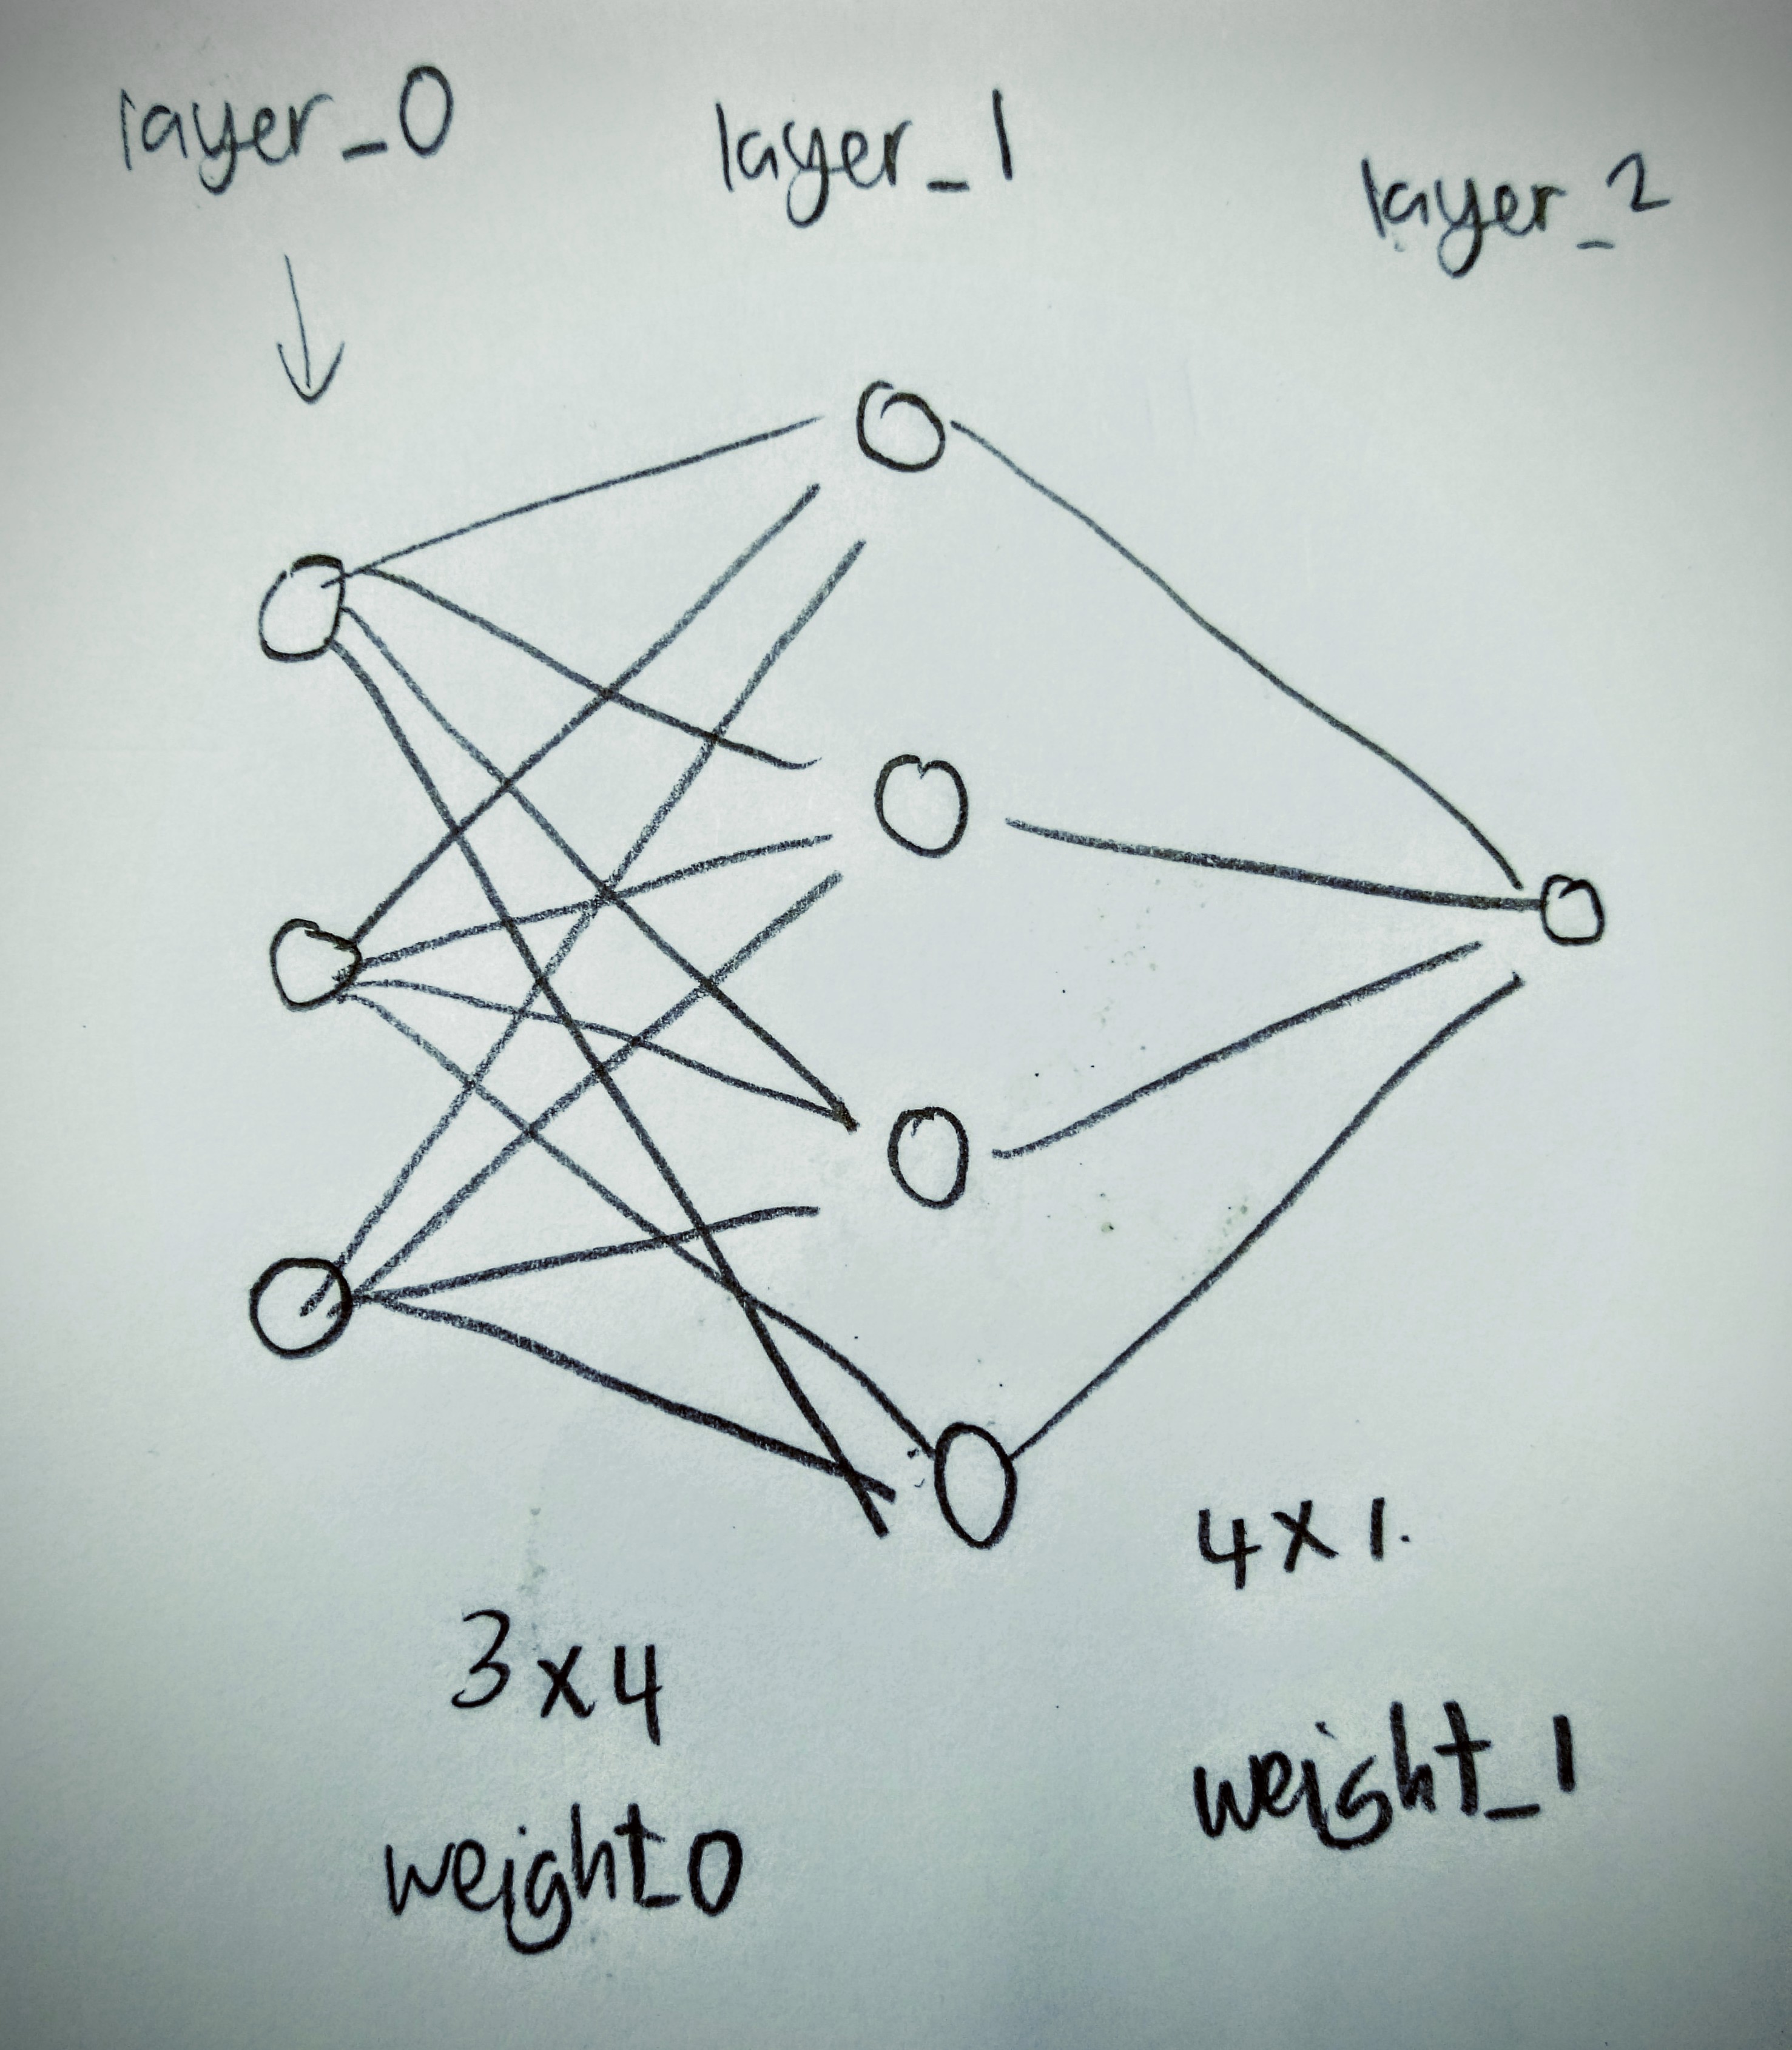 layer_0
layer_1
layer_2
4x1.
3x4
weight_1
weight_0